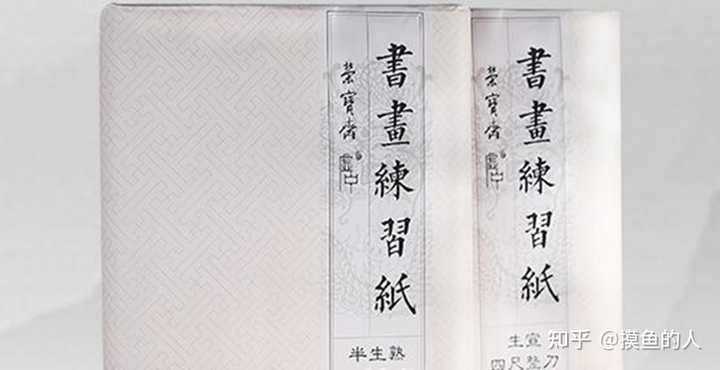 書畫練習紙
榮寶齋
半生熟
書畫練習紙
榮寶齋
生宣
四尺整刀
知乎 @摸鱼的人